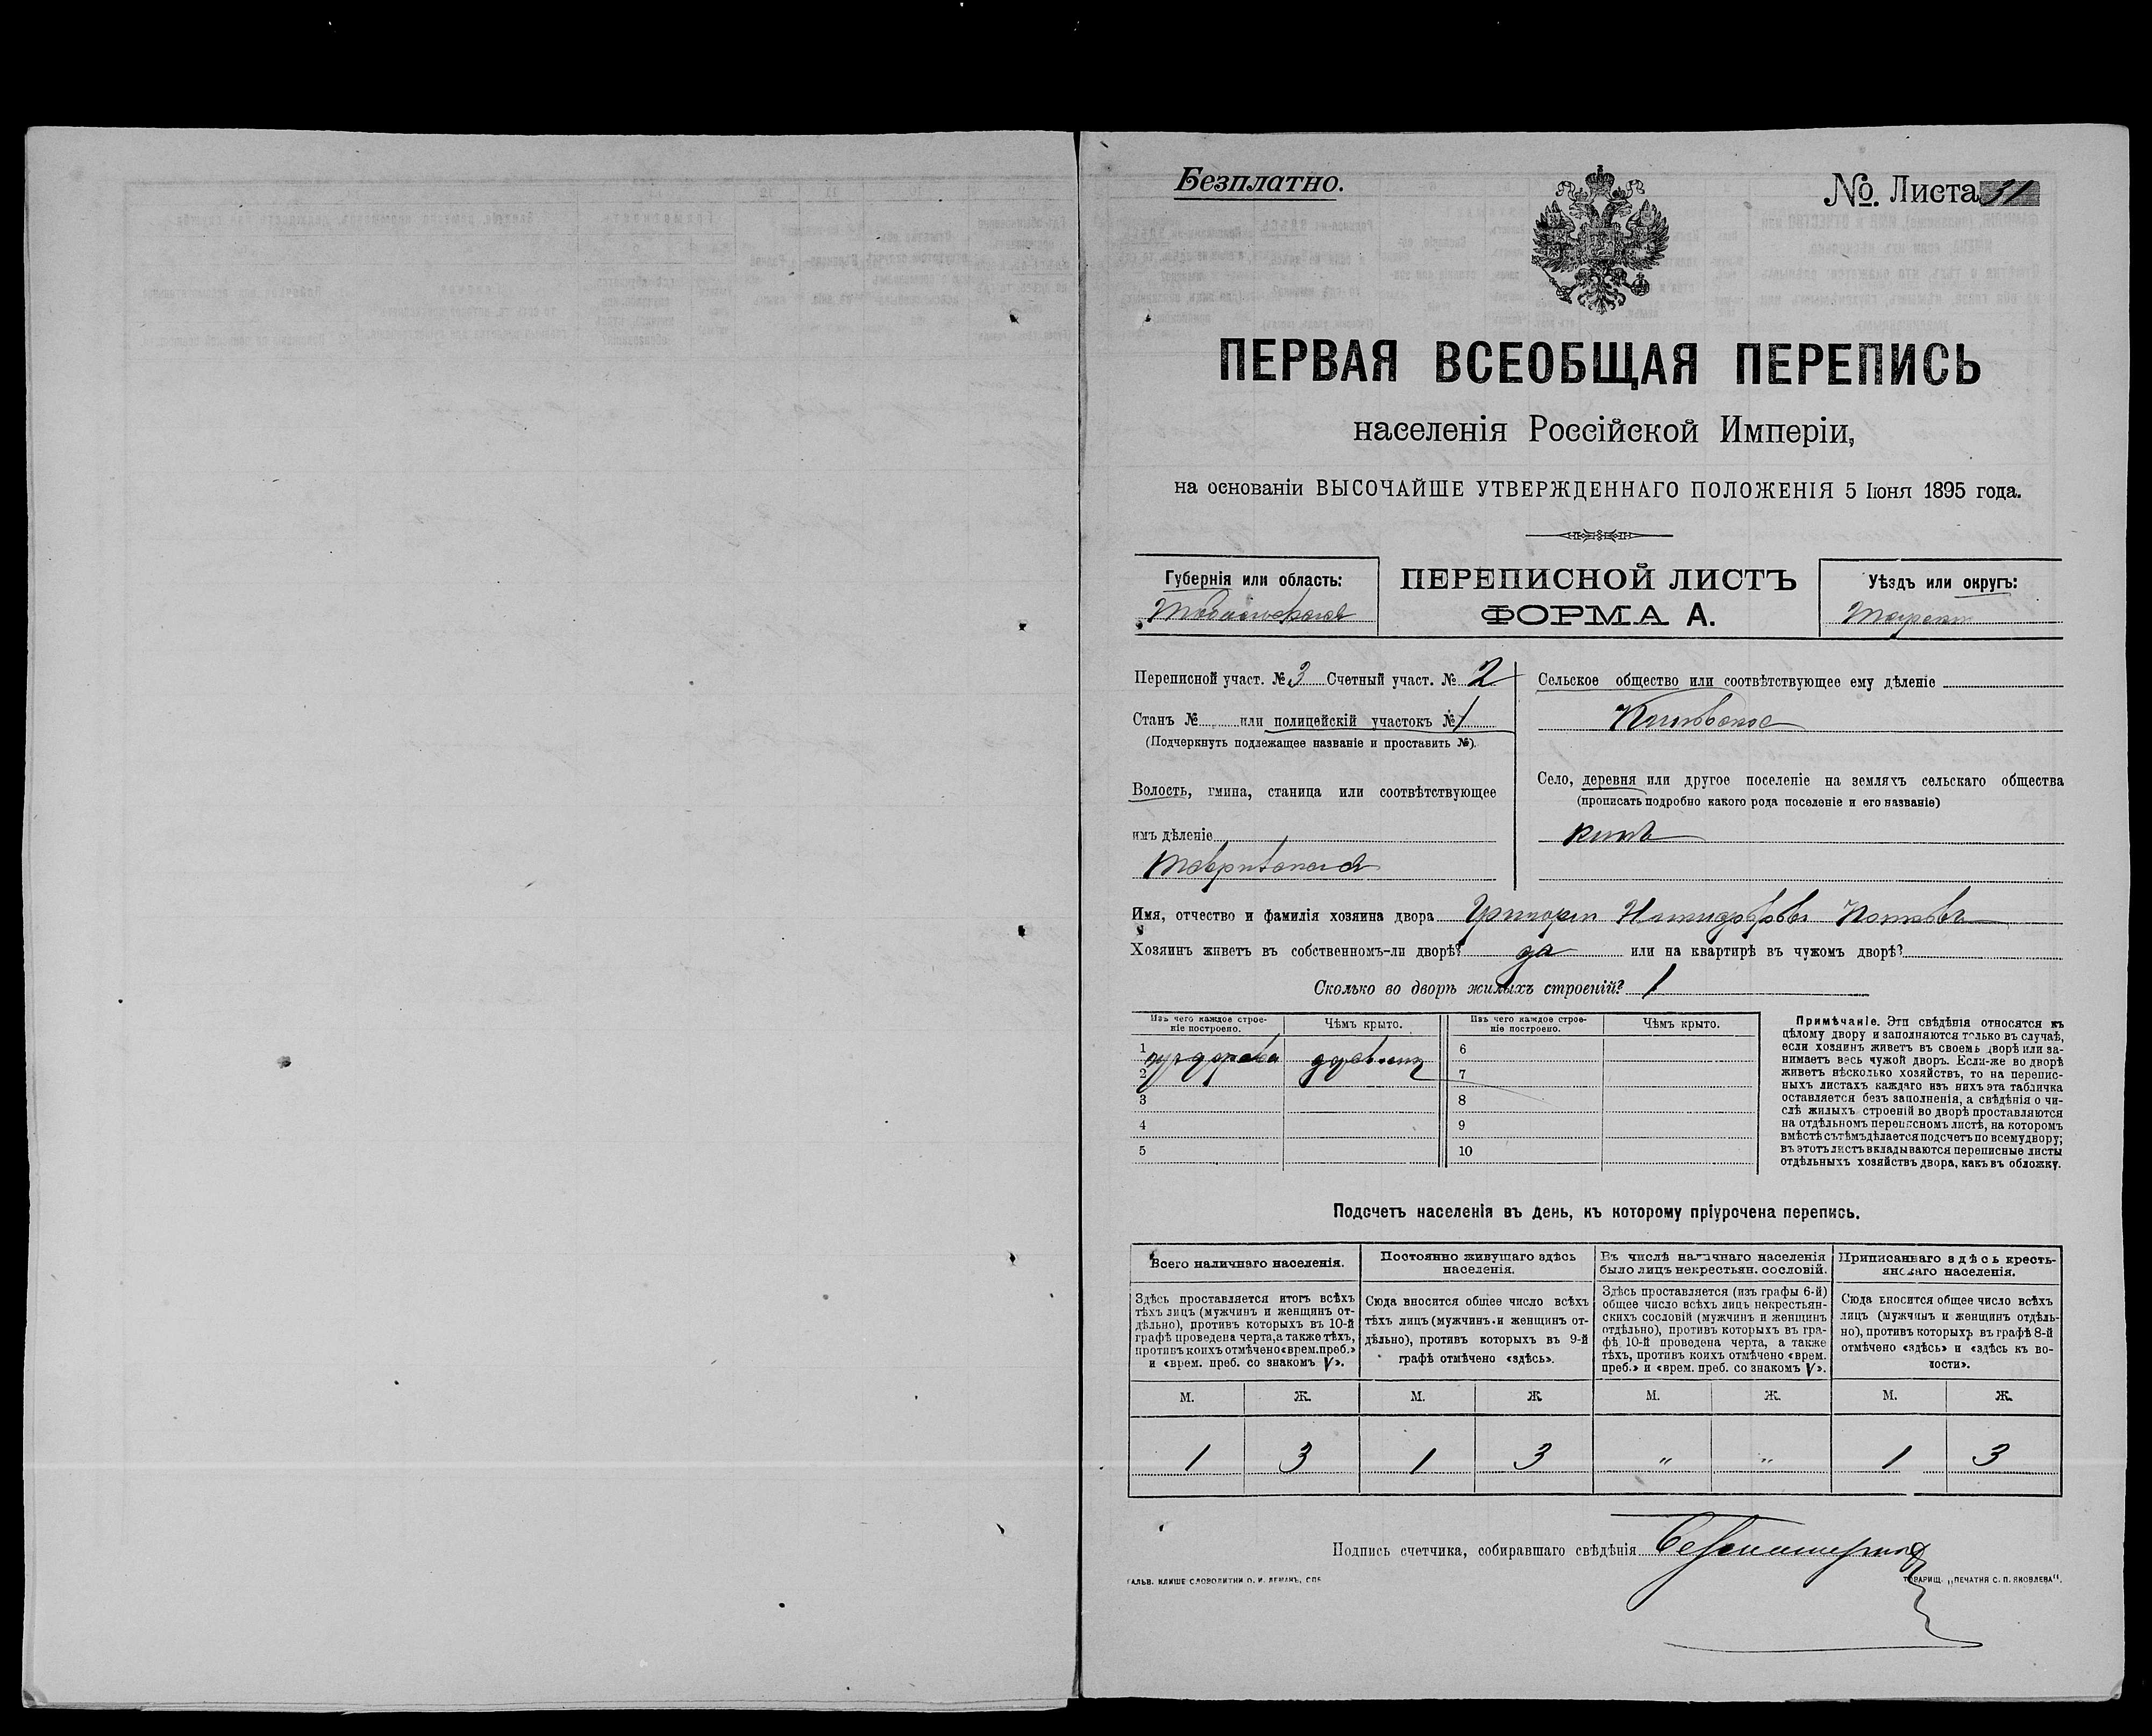 Безплатно.
№. Листа 31
ПЕРВАЯ ВСЕОБЩАЯ ПЕРЕПИСЬ
населенія Россійской Имперіи,
на основаніи ВЫСОЧАЙШЕ УТВЕРЖДЕННАГО ПОЛОЖЕНІЯ 5 Іюня 1895 года.
Губернія или область:
Тобольская
ПЕРЕПИСНОЙ ЛИСТЪ
ФОРМА А.
Уѣздъ или округъ:
Тарскій
Переписной участ. № 3 Счетный участ. № 2
Станъ № или полицейскій участокъ № 1
(Подчеркнуть подлежащее названіе и проставить №).
Волость, гмина, станица или соотвѣтствующее
имъ дѣленіе
Сельское общество или соотвѣтствующее ему дѣленіе
Село, деревня или другое поселеніе на земляхъ сельскаго общества
(прописать подробно какого рода поселеніе и его названіе)
Имя, отчество и фамилія хозяина двора Григорій
Хозяинъ живетъ въ собственномъ-ли дворѣ? да или на квартирѣ въ чужомъ дворѣ?
Сколько во дворѣ жилыхъ строеній? 1
Изъ чего каждое строе-
ніе построено.
Чѣмъ крыто.
Изъ чего каждое строе-
ніе построено.
Чѣмъ крыто.
1
6
2
7
3
8
4
9
5
10
Примѣчаніе. Эти свѣдѣнія относятся къ
цѣлому двору и заполняются только въ случаѣ,
если хозяинъ живетъ въ своемъ дворѣ или за-
нимаетъ весь чужой дворъ. Если-же во дворѣ
живетъ нѣсколько хозяйствъ, то на перепис-
ныхъ листахъ каждаго изъ нихъ эта табличка
оставляется безъ заполненія, а свѣдѣнія о чи-
слѣ жилыхъ строеній во дворѣ проставляются
на отдѣльномъ переписномъ листѣ, на которомъ
вмѣстѣ съ тѣмъ дѣлается подсчетъ по всему двору;
въ этотъ листъ вкладываются переписные листы
отдѣльныхъ хозяйствъ двора, какъ въ обложку.
Подсчетъ населенія въ день, къ которому пріурочена перепись.
Всего наличнаго населенія.
Здѣсь проставляется итогъ всѣхъ
тѣхъ лицъ (мужчинъ и женщинъ от-
дѣльно), противъ которыхъ въ 10-й
графѣ проведена черта, а также тѣхъ,
противъ коихъ отмѣчено «врем. преб.»
и «врем. преб. со знакомъ V».
Постоянно живущаго здѣсь
населенія.
Сюда вносится общее число всѣхъ
тѣхъ лицъ (мужчинъ и женщинъ от-
дѣльно), противъ которыхъ въ 9-й
графѣ отмѣчено «здѣсь».
Въ числѣ наличнаго населенія
было лицъ некрестьян. сословій.
Здѣсь проставляется (изъ графы 6-й)
общее число всѣхъ лицъ некрестьян-
скихъ сословій (мужчинъ и женщинъ
отдѣльно), противъ которыхъ въ гра-
фѣ 10-й проведена черта, а также
тѣхъ, противъ коихъ отмѣчено «врем.
преб.» и «врем. преб. со знакомъ V».
Приписаннаго здѣсь кресть-
янскаго населенія.
Сюда вносится общее число всѣхъ
лицъ (мужчинъ и женщинъ отдѣль-
но), противъ которыхъ въ графѣ 8-й
отмѣчено «здѣсь» и «здѣсь къ во-
лости».
М. Ж. М. Ж М. Ж. М. Ж.
1 3 1 3 " " 1 3
Подпись счетчика, собиравшаго свѣдѣнія
ГАЛЬВ. КЛИШЕ СЛОВОЛИТНИ О. И. ЛЕМАНЪ, СПБ
ТОВАРИЩ. „ПЕЧАТНЯ С. П. ЯКОВЛЕВА“.